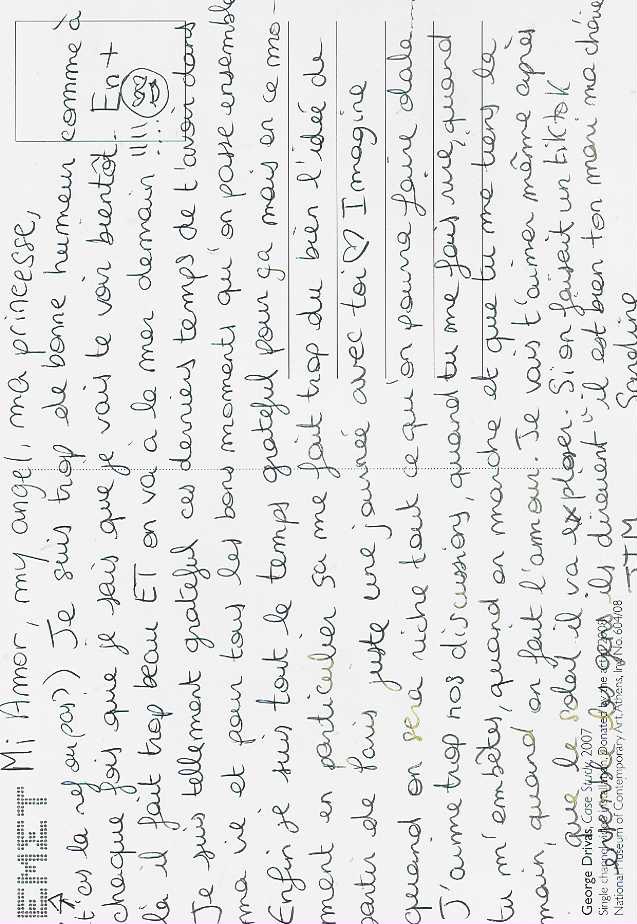 EMET
Mi Amor, my angel, ma princesse,
(t'es la ref ou pas?) Je suis trop de bonne humeur comme à
chaque fois que je sais que je vais te voir bientôt. En +
là il fait trop beau ET on va à la mer demain !!!!
Je suis tellement grateful ces derniers temps de t'avoir dans
ma vie et pour tous les bons moments qu'on passe ensemble
Enfin je suis tout le temps grateful pour ça mais en ce mo-
ment en particulier ça me fait trop du bien l'idée de
partir de Paris juste une journée avec toi ♡ Imagine
quand on sera riche tout ce qu'on pourra faire olala...
J'aime trop nos discussions, quand tu me fais rire, quand
tu m'embêtes, quand on marche et que tu me tiens la
main, quand on fait l'amour. Je vais t'aimer même après
que le soleil il va exploser. Si on faisait un tiktok
des gens ils diraient "il est bien ton mari ma chérie
JTM Sandline
George Drivas, Case Study, 2007
Single channel installation, Donated by the artist
National Museum of Contemporary Art, Athens, Inv. No. 604/08